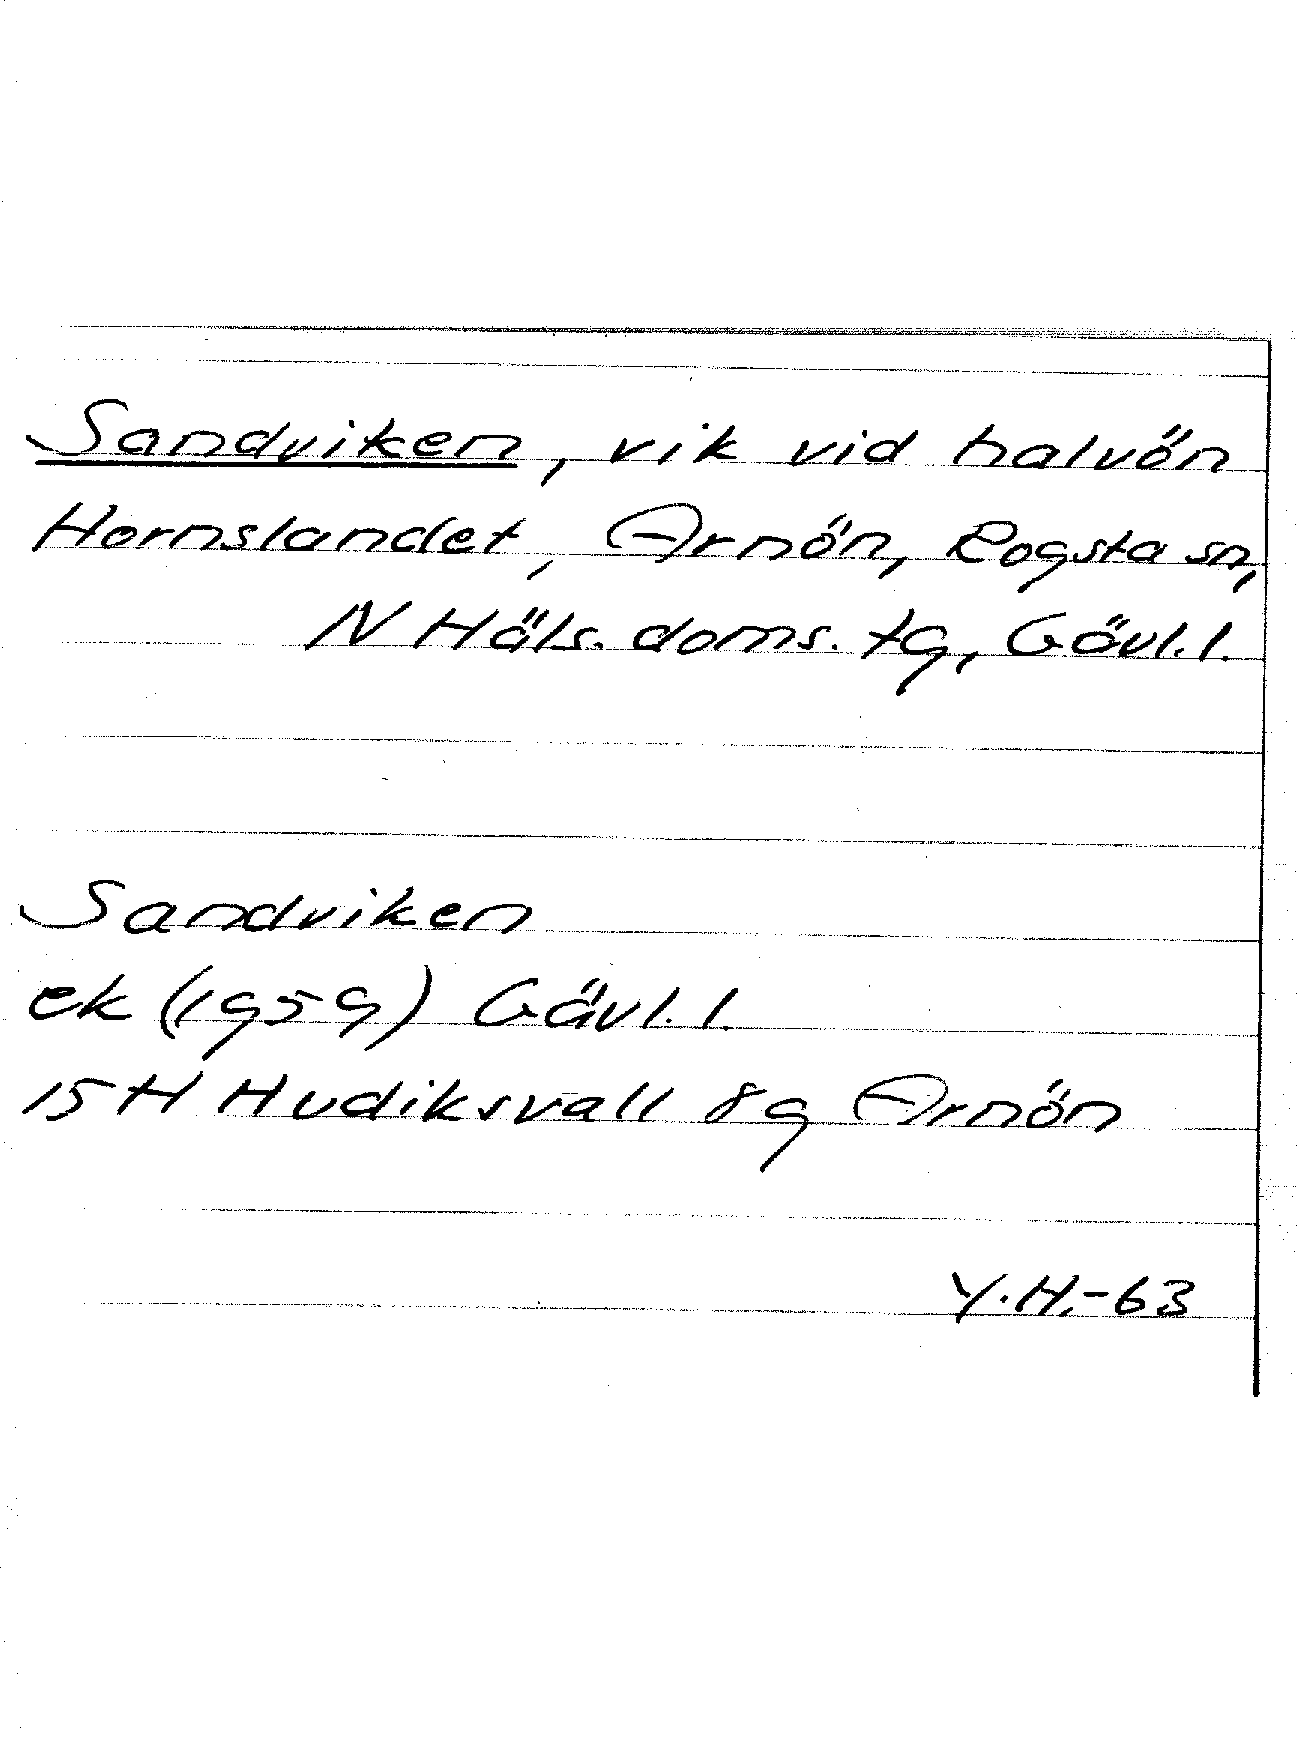 Sandviken, vik vid halvön
Hornslandet, Arnön, Rogsta sn,
N Häls. doms. tg, Gävl. l.
Sandviken
ek (1959) Gävl. l.
15 H Hudiksvall 8g Arnön
Y.H.-63